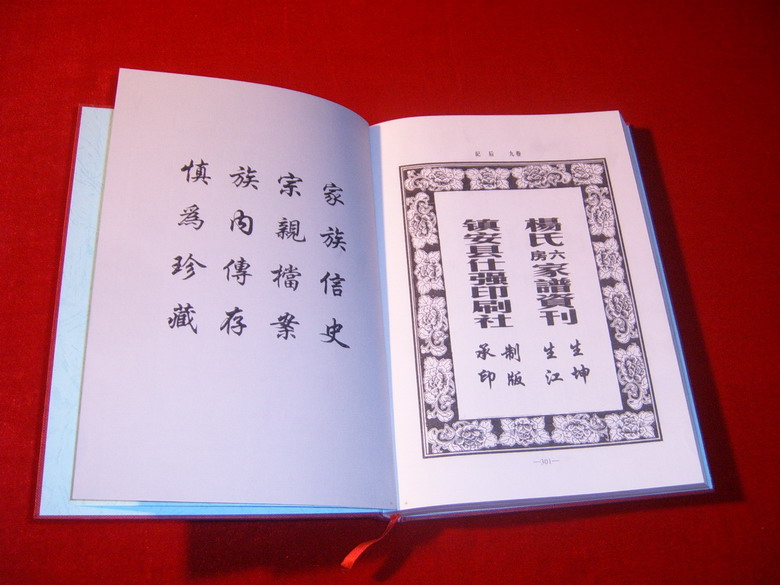 家族信史
宗親擋案
族內傳存
慎爲珍藏
卷九 后記
楊氏六房家譜資刊
生坤
生江
镇安县仕强印刷社
制版
承印
—301—